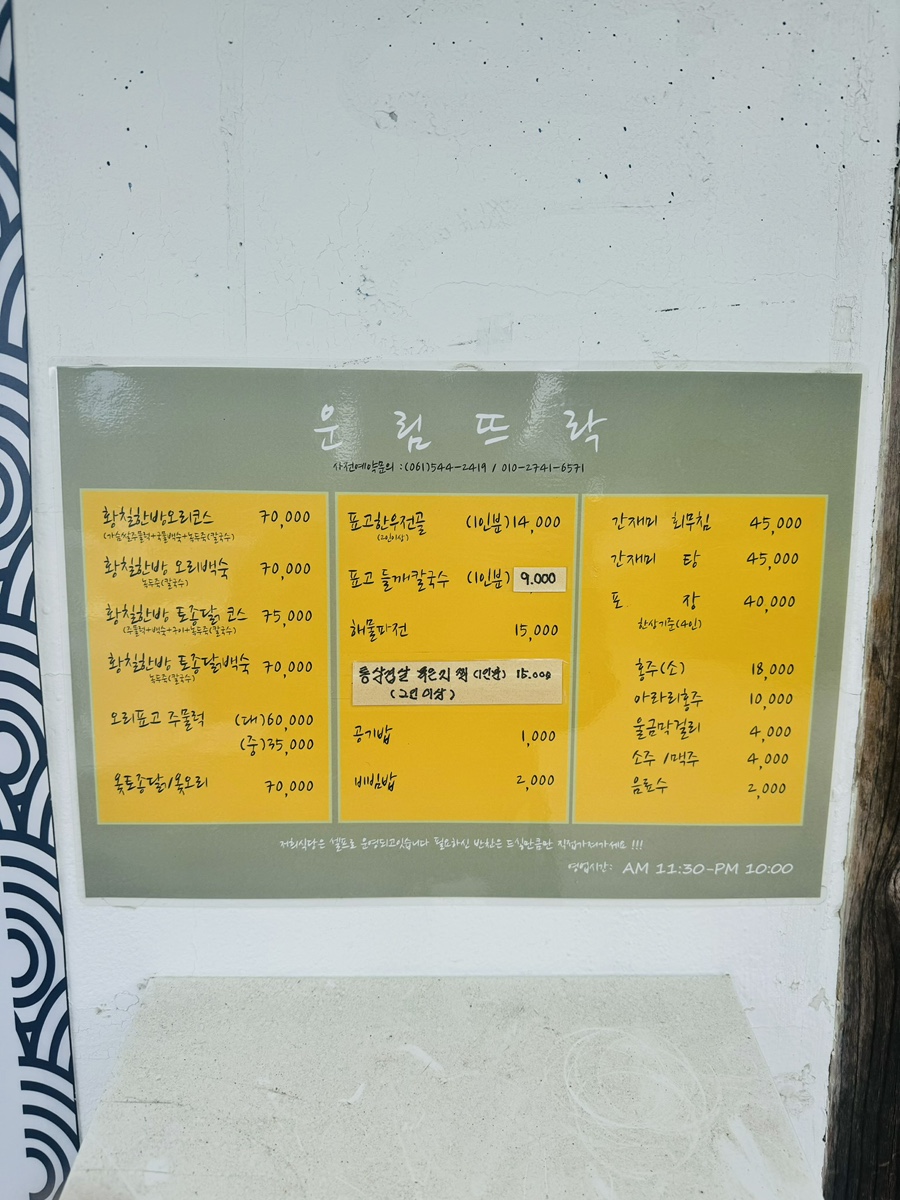 운 림 뜨 락
사전예약문의 : (061)544-2419 / 010-2741-6571
황칠한방오리코스 70,000
(가슴살주물럭+국물백숙+녹두죽(칼국수)
황칠한방 오리백숙 70,000
녹두죽(칼국수)
황칠한방 토종닭 코스 75,000
(주물럭+백숙+구이+녹두죽(칼국수)
황칠한방 토종닭백숙 70,000
녹두죽(칼국수)
오리표고 주물럭 (대)60,000
(중)35,000
옻토종닭/옻오리 70,000
표고한우전골 (1인분)14,000
(2인이상)
표고 들깨칼국수 (1인분) 9.000
해물파전 15,000
통삼겹살 묵은지 찜 (1인분) 15.000
(2인 이상)
공기밥 1,000
비빔밥 2,000
간재미 회무침 45,000
간재미 탕 45,000
포 장 40,000
한상기준(4인)
홍주(소) 18,000
아라리홍주 10,000
울금막걸리 4,000
소주 /맥주 4,000
음료수 2,000
저희식당은 셀프로 운영되고있습니다 필요하신 반찬은 드실만큼만 직접가져가세요 !!!
영업시간: AM 11:30-PM 10:00